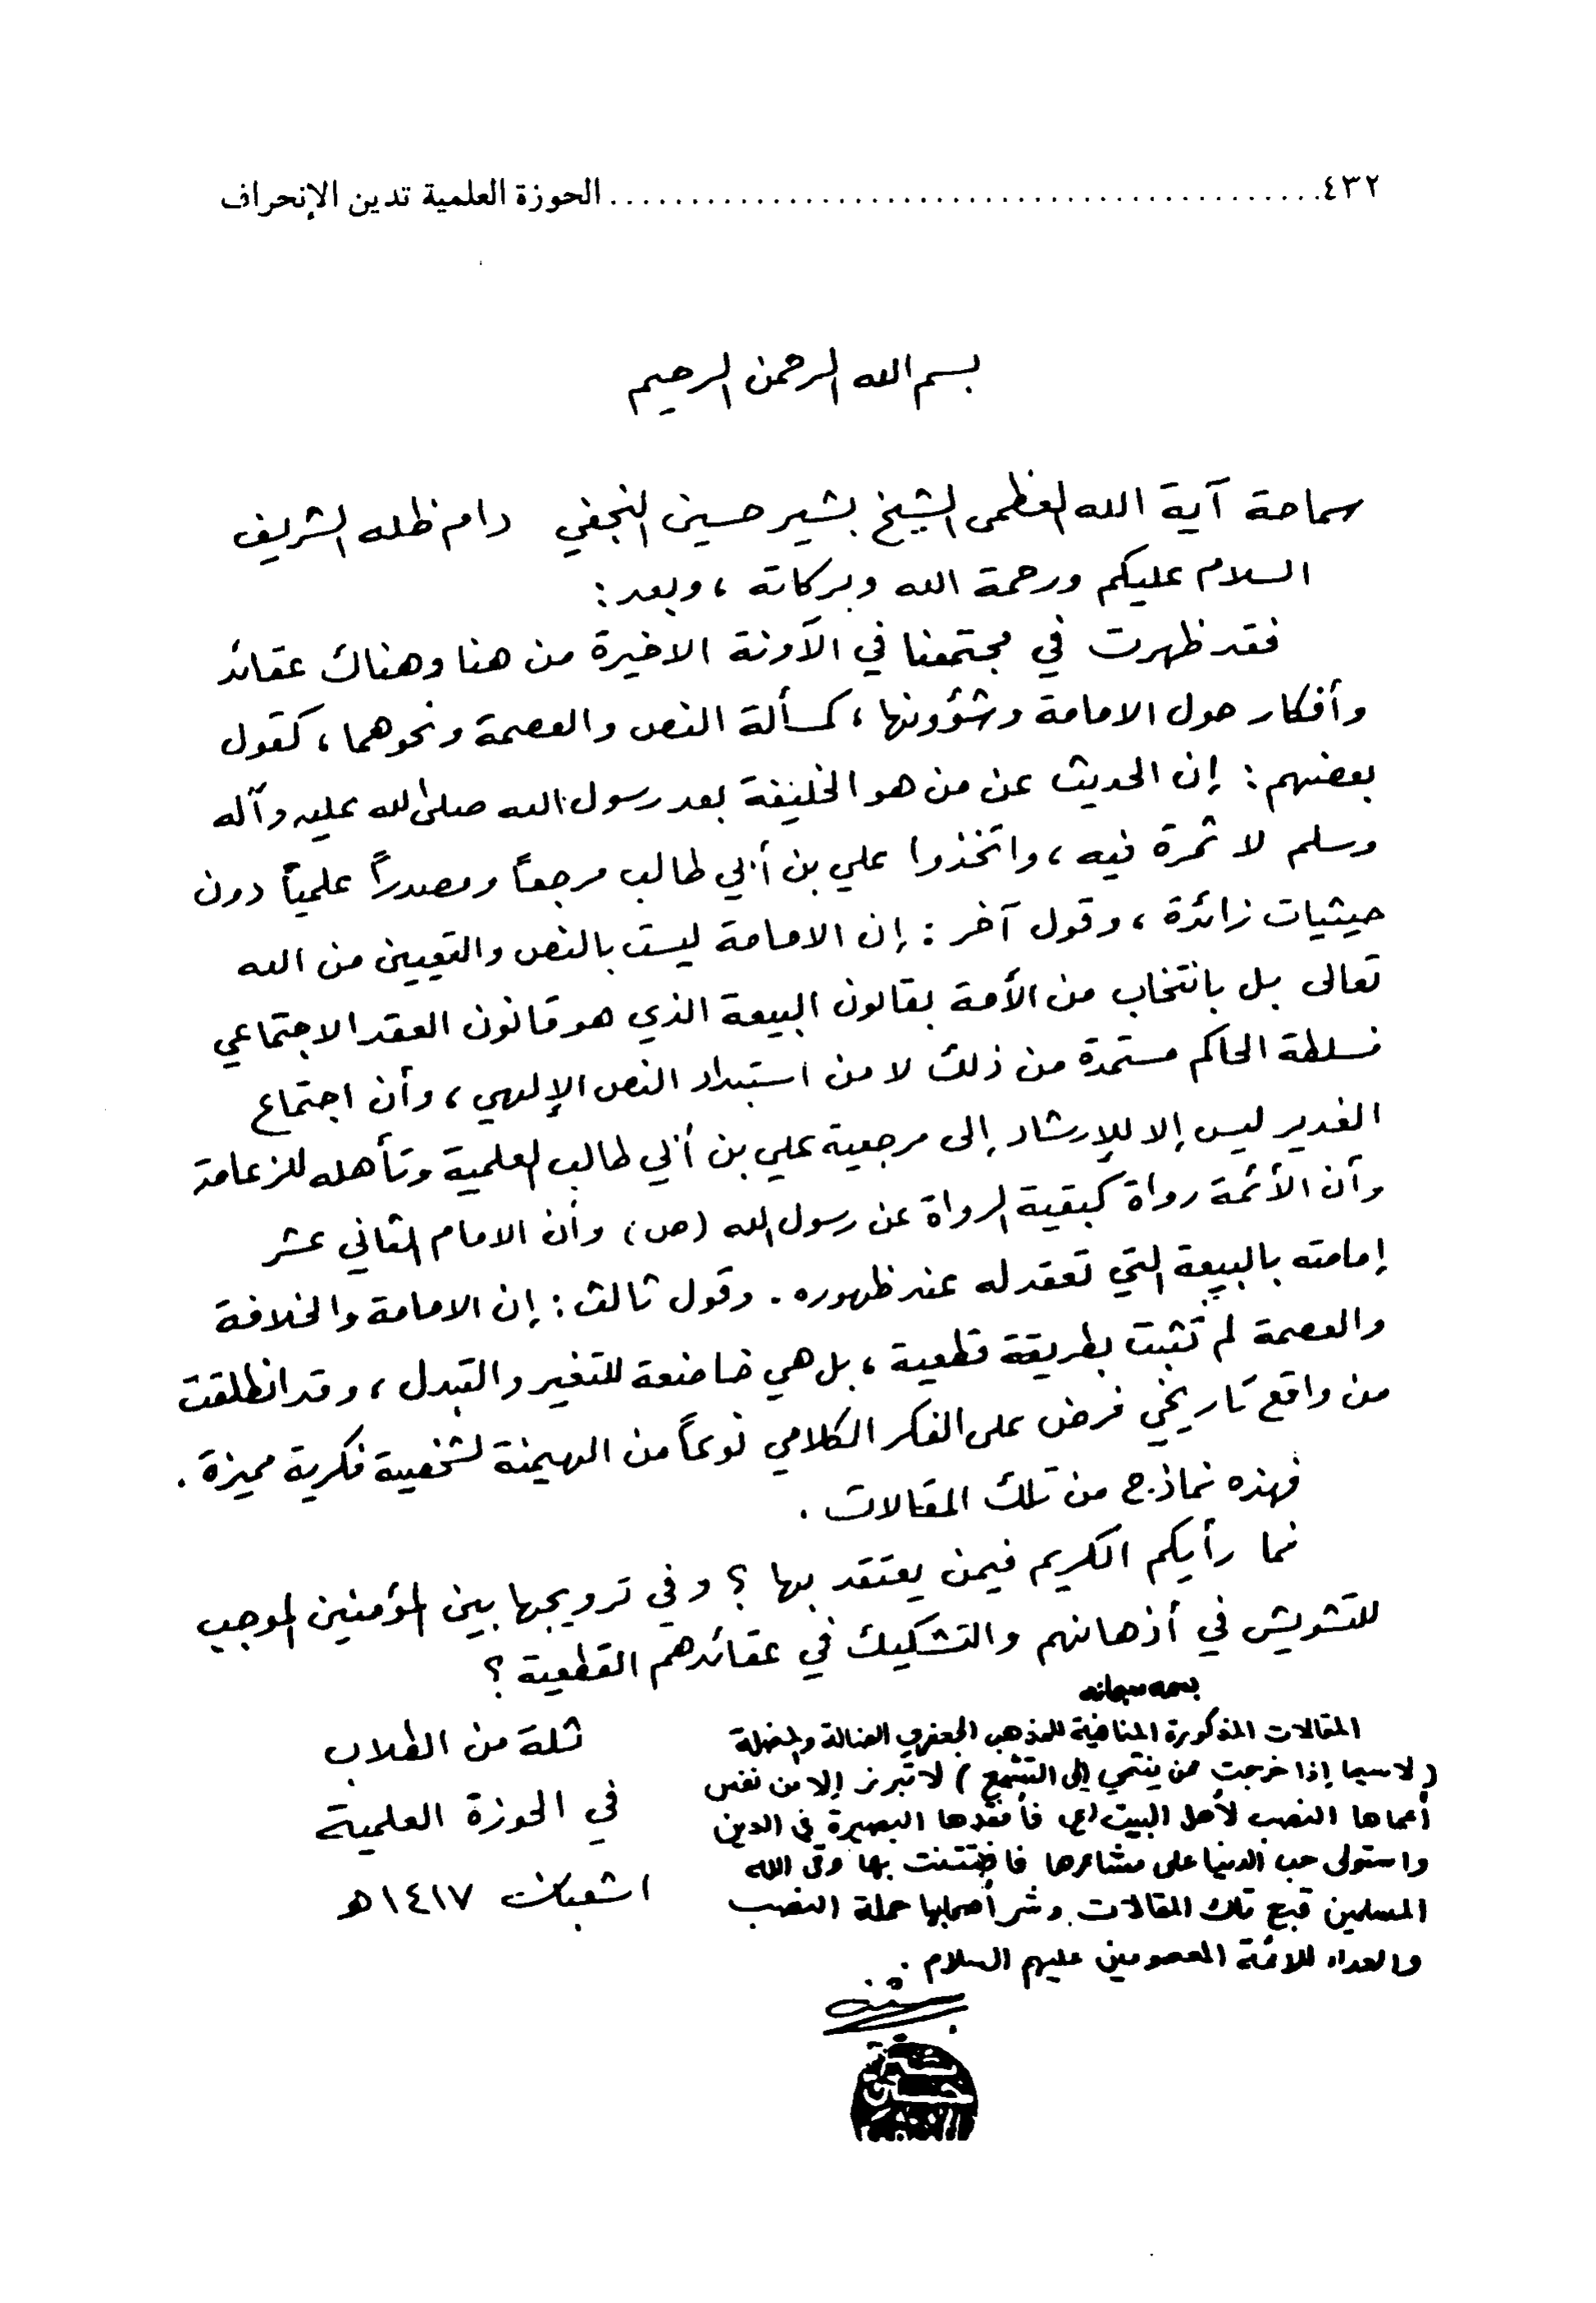 ٤٣٢ ........................................ الحوزة العلمية تدين الإنحراف
بسم الله الرحمن الرحيم
سماحة آية الله العظمى الشيخ بشير حسين النجفي دام ظله الشريف
السلام عليكم ورحمة الله وبركاته ، وبعد :
فقد ظهرت في مجتمعنا في الآونة الاخيرة من هنا وهناك عقائد
وأفكار حول الامامة وشؤونها ، كمسألة النص والعصمة ونحوهما ، كقول
بعضهم : إن الحديث عن من هو الخليفة بعد رسول الله صلى الله عليه وآله
وسلم لا ثمرة فيه ، واتخذوا علي بن أبي طالب مرجعاً ومصدراً علمياً دون
حيثيات زائدة ، وقول آخر : إن الامامة ليست بالنص والتعيين من الله
تعالى بل بانتخاب من الأمة بقانون البيعة الذي هو قانون العقد الاجتماعي
فسلطة الحاكم مستمدة من ذلك لا من استبداد النص الإلهي ، وأن اجتماع
الغدير ليس إلا للإرشاد إلى مرجعية علي بن أبي طالب العلمية وتأهله للزعامة
وأن الأئمة رواة كبقية الرواة عن رسول الله (ص) وأن الامام الثاني عشر
إمامته بالبيعة التي تعقد له عند ظهوره . وقول ثالث : إن الامامة والخلافة
والعصمة لم تثبت بطريقة قطعية ، بل هي خاضعة للتغير والتبدل ، وقد انطلقت
من واقع تاريخي فرض على الفكر الكلامي نوعاً من الهيمنة لشخصية فكرية مميزة .
فهذه نماذج من تلك المقالات .
فما رأيكم الكريم فيمن يعتقد بها ؟ وفي ترويجها بين المؤمنين الموجب
للتشويش في أذهانهم والتشكيك في عقائدهم القطعية ؟
ثلة من الطلاب
في الحوزة العلمية
١ شعبان ١٤١٧ هـ
بسمه سبحانه
المقالات المذكورة المنافية للمذهب الجعفري الضالة والمضلة
( لاسيما إذا خرجت ممن ينتمي إلى التشيع ) لا تبرز إلا من نفس
أعماها النصب لأهل البيت (ع) فأفقدها البصيرة في الدين
واستولى حب الدنيا على مشاعرها فافتتنت بها وقى الله
المسلمين قبح تلك المقالات وشر أصحابها حملة النصب
والعداء للائمة المعصومين عليهم السلام .